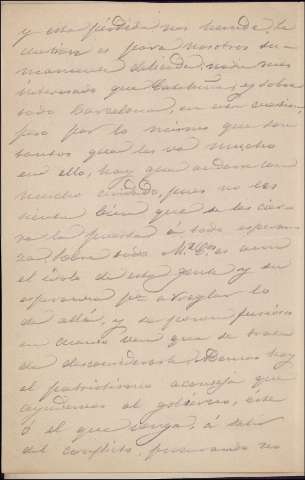 y esta pérdida nos hunde, la
cuestion es para nosotros su-
mamente delicada; nadie mas
interesado que Cataluña, y sobre
todo Barcelona, en esta cuestion,
pero por lo mismo que son
tantos que les va mucho
en ello, hay que andarse con
mucho cuidado, pues no les
sienta bien que se les cier-
re la puerta á todo esperan-
za sobre todo Mz. Cos es aun
el ídolo de esta gente y su
esperanza pa arreglar lo
de allá, y se ponen furiosos
en cuanto ven que se trata
de desconsiderarle. Demas hoy
el patriotismo aconseja que
ayudemos al gobierno, este
ó el que venga, á salir
del conflicto, procurando no